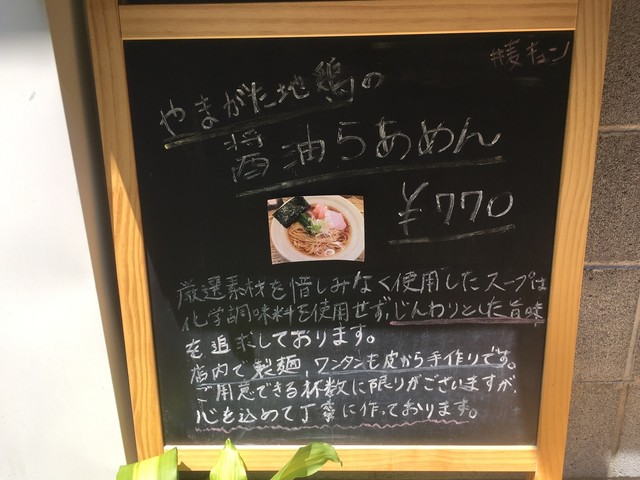 #麦キュン
やまがた地鶏の
醤油らあめん
¥770
厳選素材を惜しみなく使用したスープは
化学調味料を使用せず、じんわりとした旨味
を追求しております。
店内で製麺、ワンタンも皮から手作りです。
ご用意できる杯数に限りがございますが、
心を込めて丁寧に作っております。